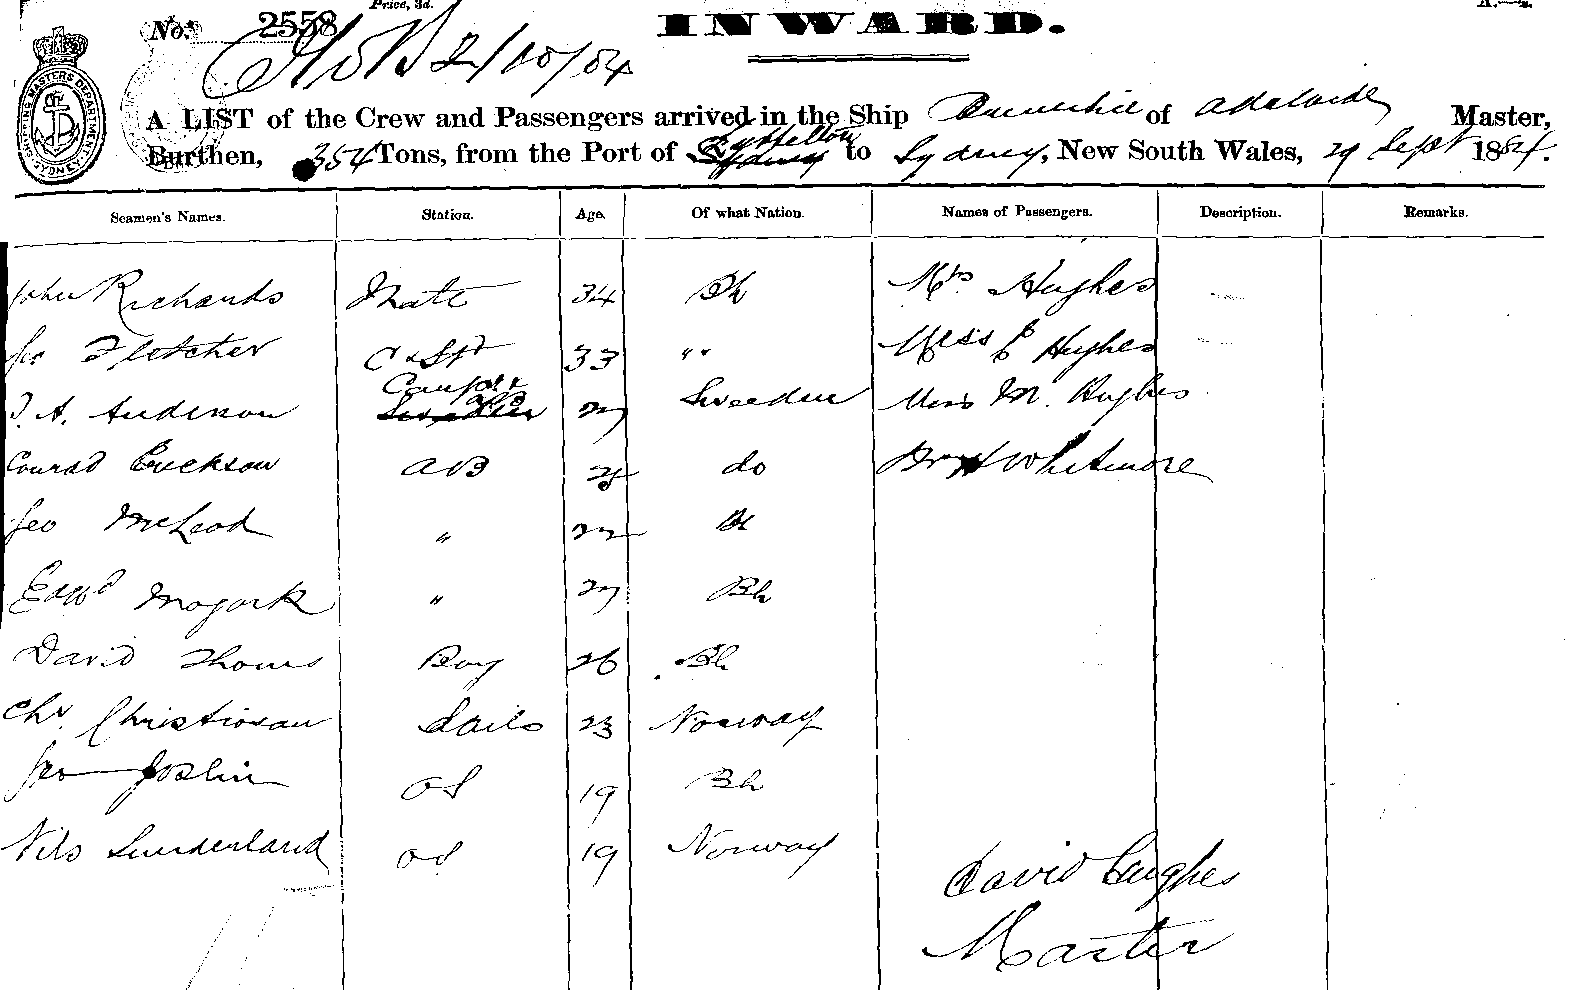 Price, 3d.
No. 2558
INWARD.
2/10/84
SHIPPING MASTERS DEPARTMENT SYDNEY
A LIST of the Crew and Passengers arrived in the Ship of Adelaide Master,
Burthen, 354 Tons, from the Port of Sydney Lyttelton to Sydney, New South Wales, 29 Sept 1884.
Seamen's Names. Station. Age. Of what Nation. Names of Passengers. Description. Remarks.
John Richards Mate 34 Bh Mrs Hughes
Fletcher C & St 33 " " Miss E Hughes
Andersson 27 Sweden Miss M. Hughes
Conrad Erickson AB do Whitmore
Geo McLeod "
Edwd " 27 Bh
David Thoms Boy 26 Bh
Chr. Christiosan Sails 23 Norway
Joslin OS 19 Bh
Nils Sunderland OS 19 Norway
David Hughes
Master